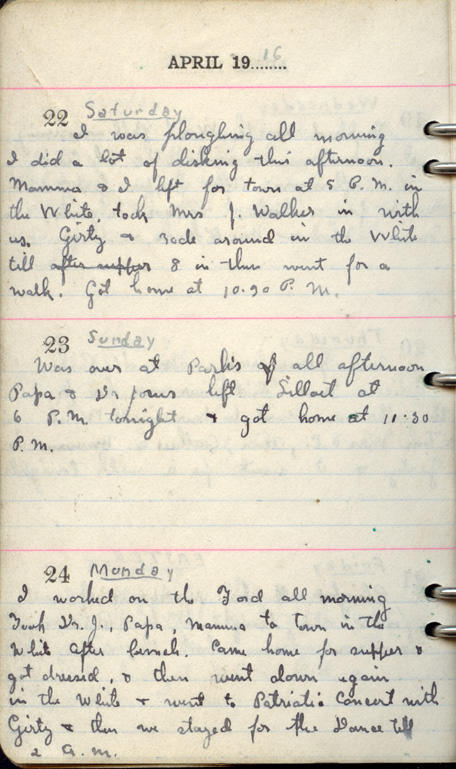 APRIL 19........16
22 Saturday
I was ploughing all morning
I did a lot of disking this afternoon.
Mamma & I left for town at 5 P.M. in
the White, took Mrs J. Walker in with
us. Girty & rode around in the White
till after supper 8 in then went for a
walk. Got home at 10.30 P.M.
23 Sunday
Was over at Park's all afternoon
Papa & left at
6 P.M. tonight & got home at 11.30
P.M.
24 Monday
I worked on the Ford all morning
Took Dr. J., Papa, Mamma to town in the
White after lunch. Came home for supper &
got dressed, & then went down again
in the White & went to Patriotic Concert with
Girty & then we stayed for the Dance till
2 A.M.